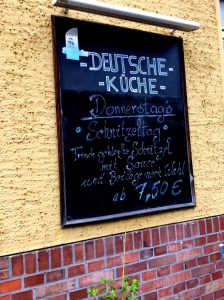 -DEUTSCHE-
-KÜCHE-
Donnerstag's
Schnitzeltag
Frisch geklopfte Schnitzel
mit Sauce
und Beilage nach Wahl
ab 7,50 €